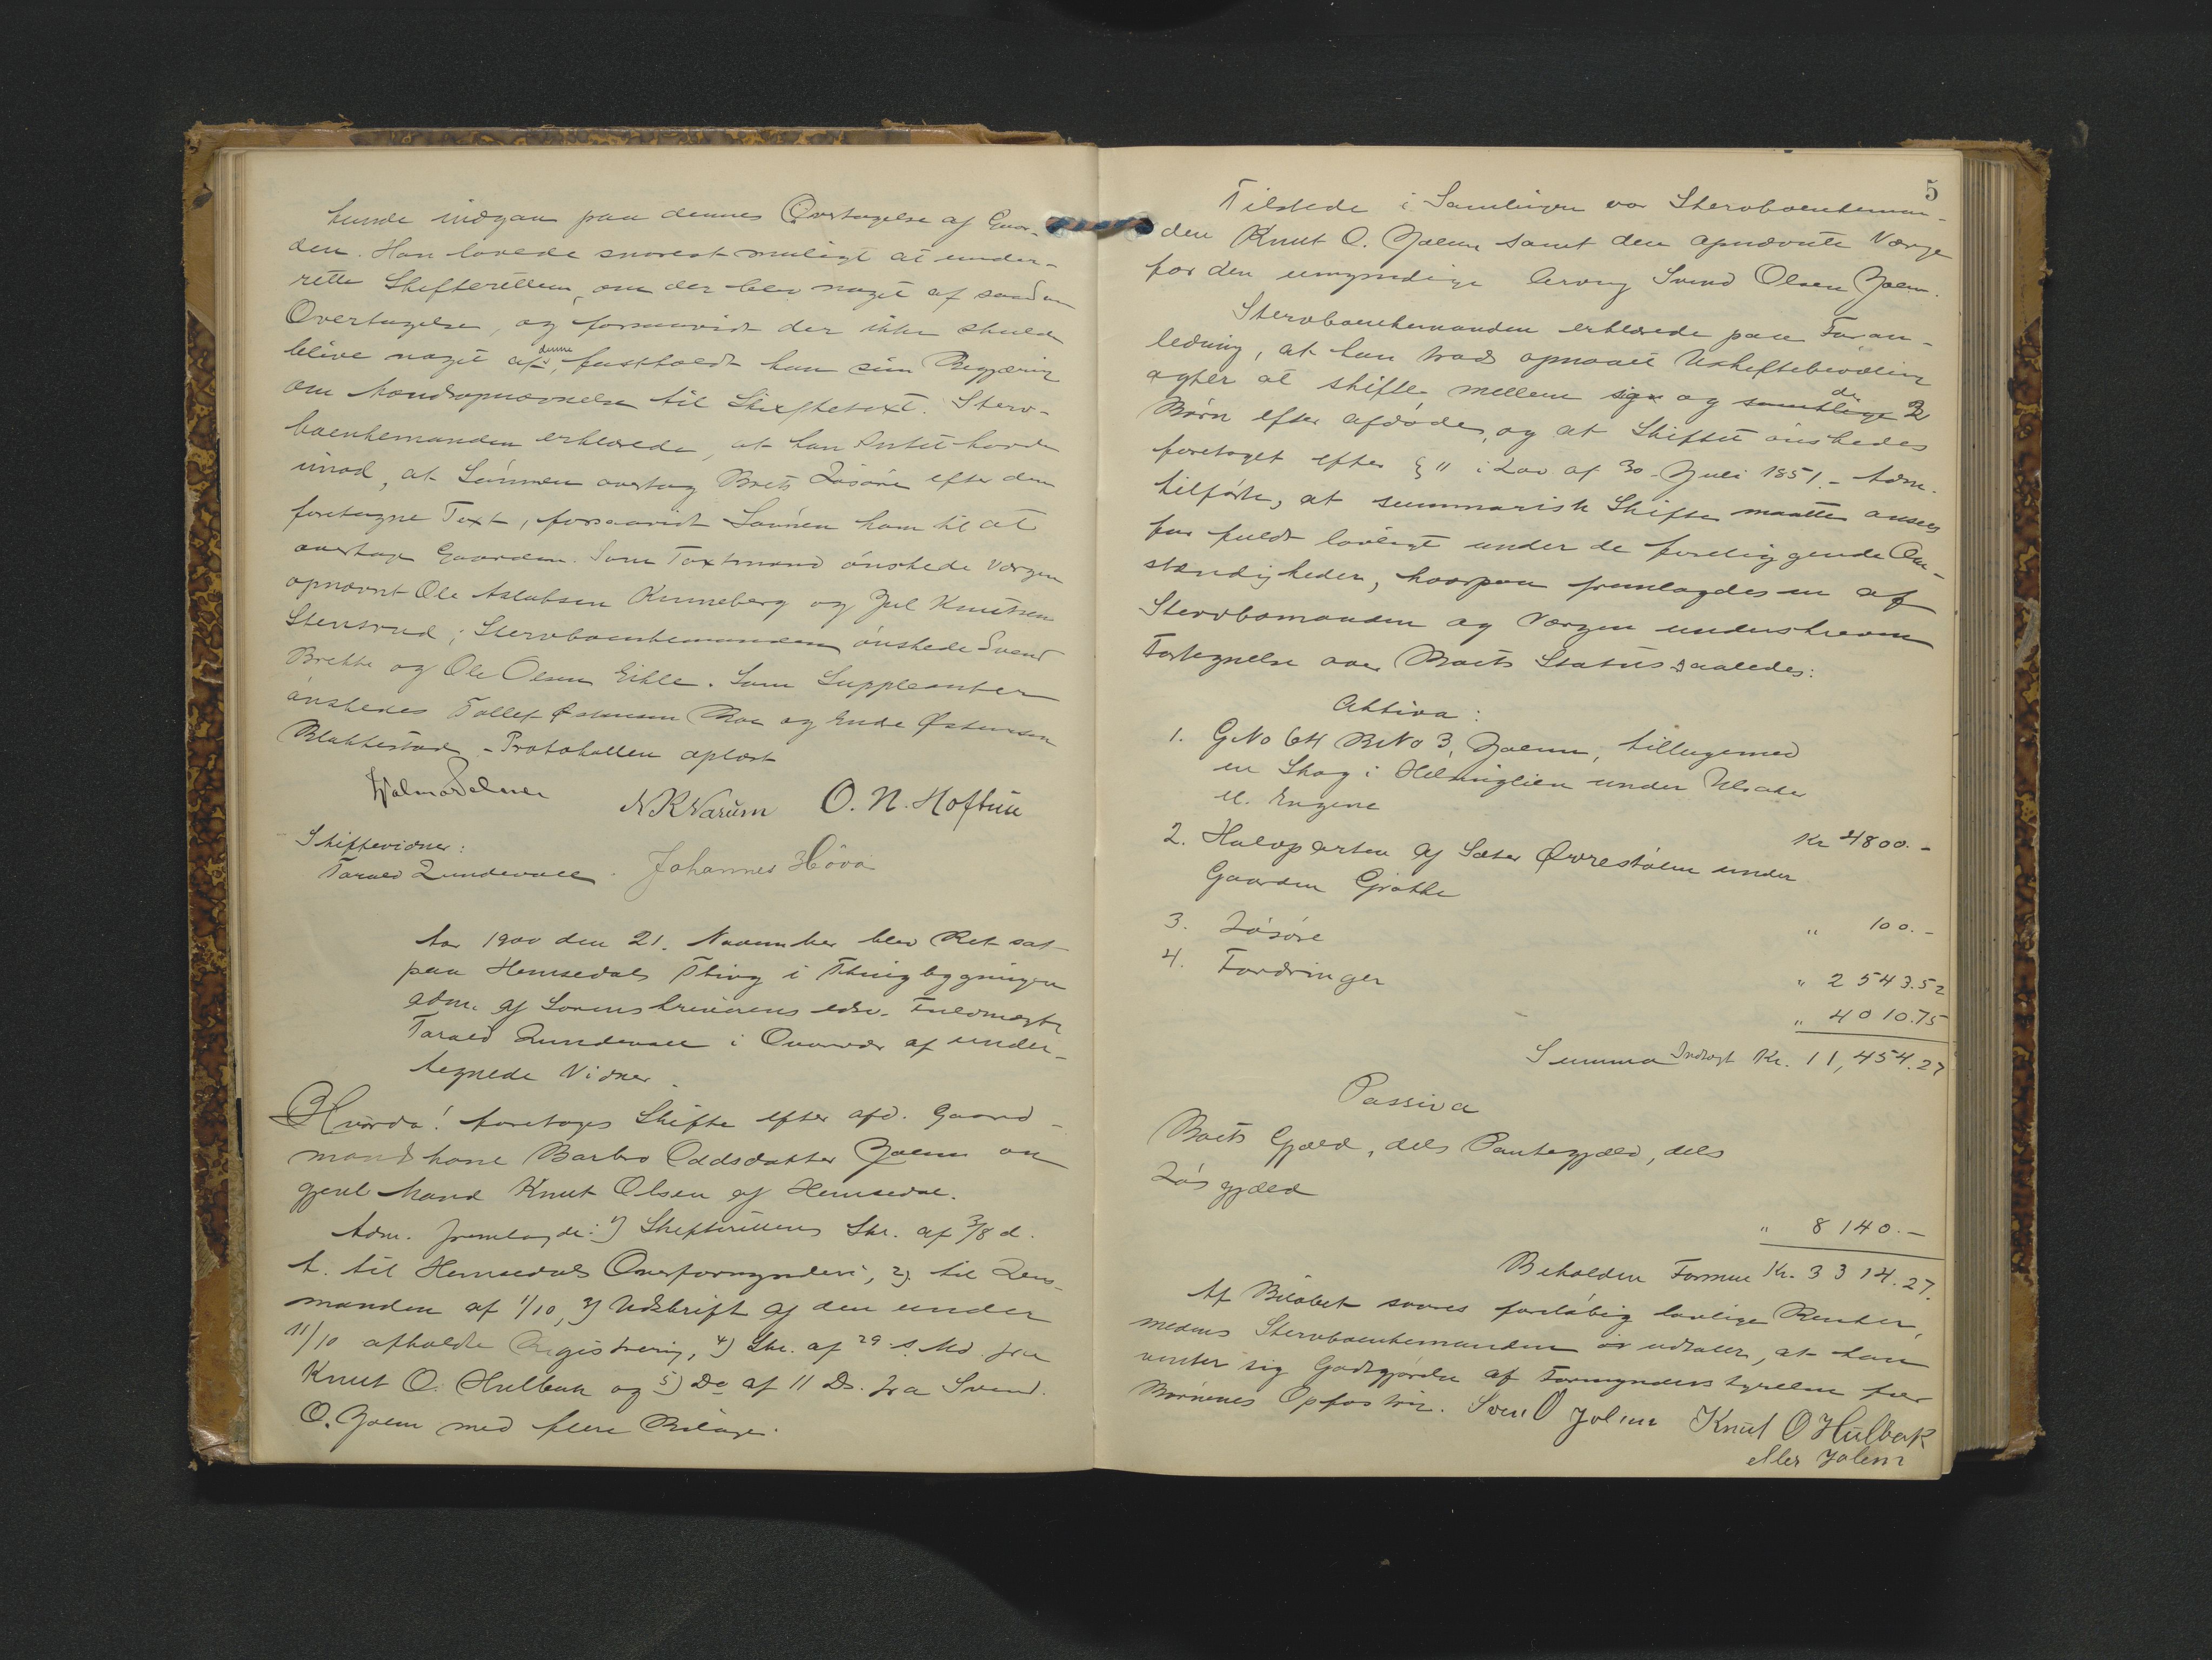 kunde indgaa paa dennes Overtagelse af Gaar-
den. Han lovede snarest muligt at under-
rette Skifteretten, om der blev noget af saadan
Overtagelse, og forsaavidt der ikke skulde
blive noget af denne, fastholdt han sin Begjæring
om Mandsopnævnelse til Skiftetaxt. Sterv-
boenkemanden erklærede, at han Intet havde
imod, at Sønnen overtog Boets Løsøre efter den
foretagne Taxt, forsaavidt Sønnen kom til at
overtage Gaarden. Som Taxtmænd ønskede Værgen
opnævnt Ole Aslaksen Kinneberg og Jul Knutsen
Stensrud; Stervboenkemanden ønskede Svend
Brekke og Ole Olsen Eikle. Som Suppleanter
ønskedes Tollef Østensen Roe og Endre Østensen
Blakkestad. - Protokollen oplæst
N K Narum O. N. Hoftun
Skiftevidner:
Tarald Lundevall. Johannes Høva
Aar 1900 den 21. November blev Ret sat
paa Hemsedals Thing i Thingbygningen
adm. af Sorenskriverens edsv. Fuldmægtig
Tarald Lundevall i Overvær af under-
tegnede Vidner.
Hvorda! foretages Skifte efter afd. Gaard-
mandskone Barbro Oddsdatter Jolem og
gjenl. Mand Knut Olsen af Hemsedal.
Adm. fremlagde: 1) Skifterettens Skr. af 3/8 d.
A. til Hemsedals Overformynderi, 2) til Lens-
manden af 1/10, 3) Udskrift af den under
11/10 afholdte Registrering, 4) Skr. af 29 s. Md. fra
Knut O. Hulbak og 5) Do af 11 Ds. fra Svend
O. Jolem med flere Bilage.
5
Tilstede i Samlingen var Stervboenkeman-
den Knut O. Jolem samt den opnævnte Værge
for den umyndige Arving Svend Olsen Jolem.
Stervboenkemanden erklærede paa Foran-
ledning, at han trods opnaaet Uskiftebevilling
agter at skifte mellem sig og samtlige de 2
Børn efter afdøde, og at Skiftet ønskedes
foretaget efter § 11 i Lov af 30. Juli 1851. - Adm.
tilførte, at summarisk Skifte maatte ansees
for fuldt lovligt under de foreliggende Om-
stændigheder, hvorpaa fremlagdes en af
Stervbomanden og Værgen underskreven
Fortegnelse over Boets Status saaledes:
Aktiva:
1. GNo 64 BNo 3, Jolem, tilligemed
en Skog i Helminglien under Ulsaker
m. Engene Kr 4800.-
2. Halvparten af Sæter Øvrestølen under
Gaarden Grøtte " 100.-
3. Løsøre " 2543.52
4. Fordringer " 4010.75
Summa Indtægt Kr. 11,454.27
Passiva
Boets Gjæld, dels Pantegjæld, dels
Løsgjæld " 8140.-
Beholden Formue Kr. 3314.27.
Af Beløbet svares foreløbig lovlige Renter,
medens Stervboenkemanden udtaler, at han
venter sig Godtgjørelse af Formynderstyrelsen for
Børnenes Opfostring. Sven O Jolem Knut O Hulbak
eller Jolem